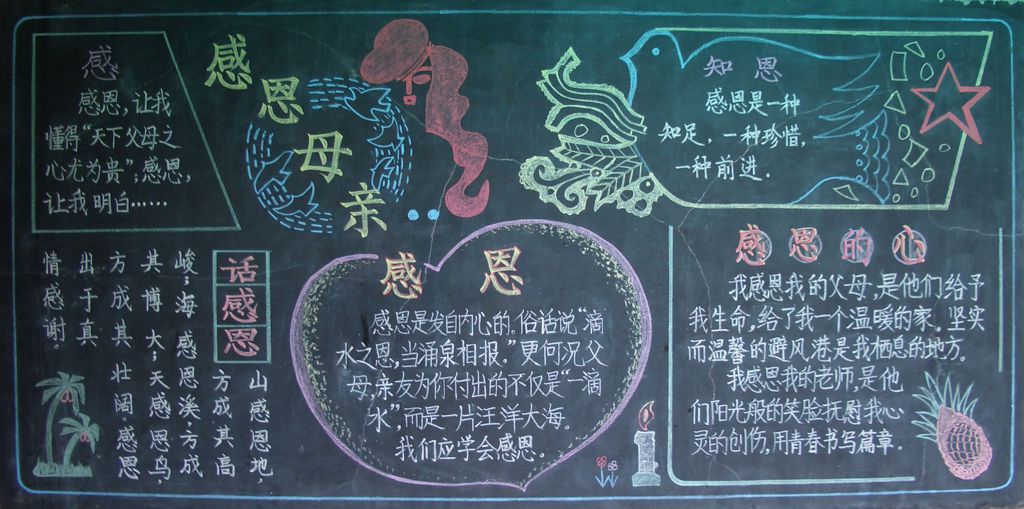 感
感恩，让我
懂得“天下父母之
心尤为贵”；感恩，
让我明白……
感恩母亲
知恩
感恩是一种
知足，一种珍惜，
一种前进.
话感恩
山感恩地，
方成其高
峻；海感恩溪，方成
其博大；天感恩鸟，
方成其壮阔感恩
出于真
情感谢.
感恩
感恩是发自内心的。俗话说“滴
水之恩，当涌泉相报。”更何况父
母，亲友为你付出的不仅是“一滴
水”，而是一片汪洋大海。
我们应学会感恩。
感恩的心
我感恩我的父母，是他们给予
我生命，给了我一个温暖的家。坚实
而温馨的避风港是我栖息的地方。
我感恩我的老师，是他
们阳光般的笑脸抚慰我心
灵的创伤，用青春书写篇章.